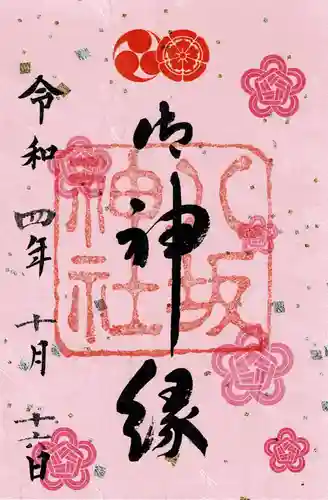 御神縁
八坂神社
令和四年十月十六日